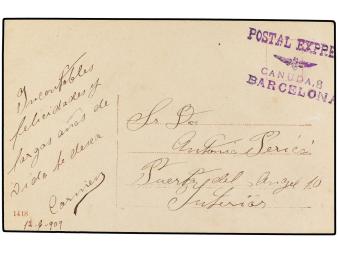 POSTAL EXPRE
CANUDA, 8
BARCELONA
Incontables
felicidades y
largas años de
vida te desea
Carmen
1418
12-9-909
Sr. Dn
Antonio
Puerta del Angel 10
Interior